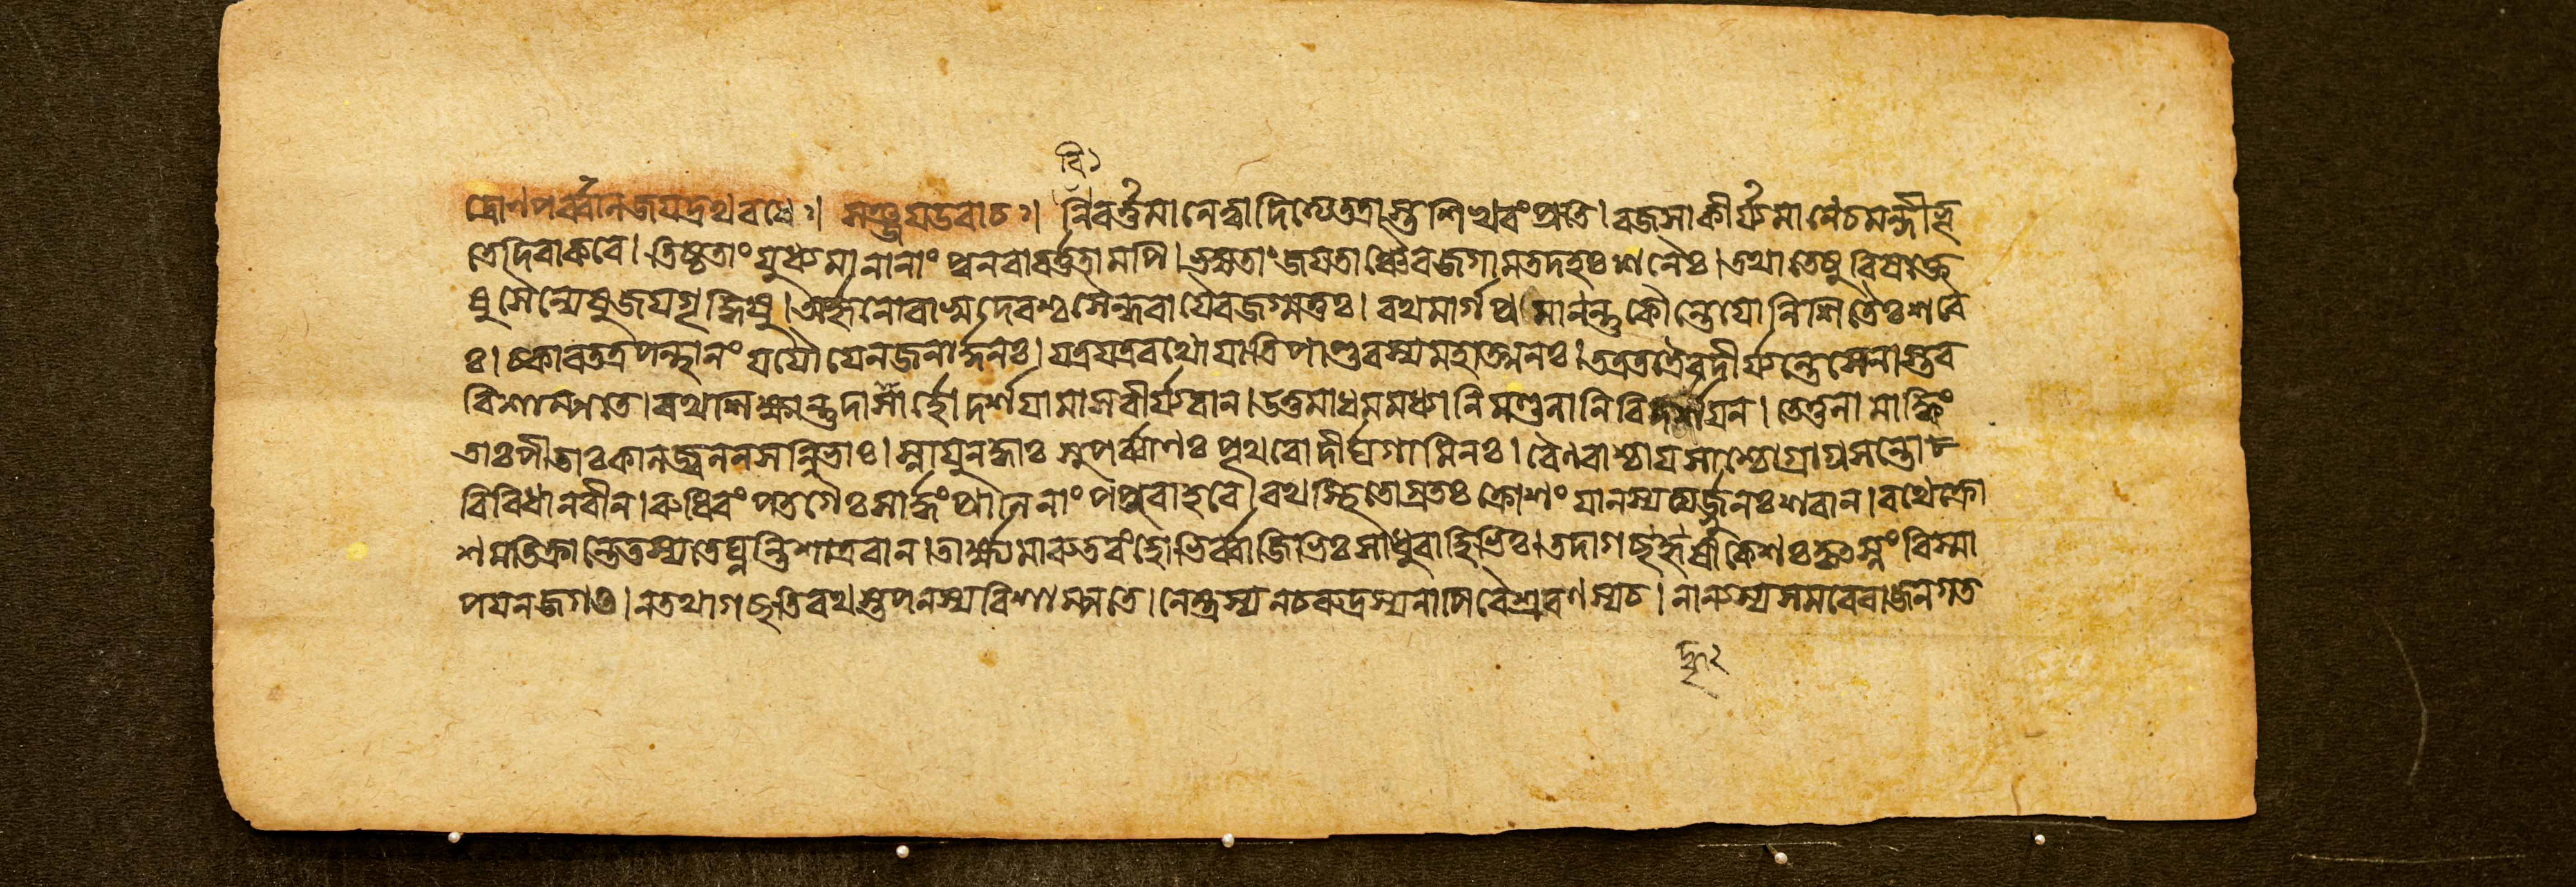 বি১
দ্রোণপর্ব্বানজয়দ্রথবধে৹। সঞ্জয়উবাচ৹। নিবর্ত্তমানেত্বাদিত্যেতত্রাস্তশিখরংপ্রতি। রজসাকীর্য্যমাণেচমন্দীভূ
তেদিবাকরে। তিষ্ঠতাংযুধ্যমানানাং পুনরাবর্ত্ততামপি। ভজ্যতাংজয়তাঞ্চৈবজগামতদহঃশনৈঃ। তথাতেষুবিষক্তে
ষুসৈন্যেষুজয়গৃদ্ধিষু। অর্জ্জুনোবাসুদেবশ্চসৈন্ধবায়ৈবজগ্মতুঃ। রথমার্গপ্রমানন্তুকৌন্তেয়োনিশিতৈঃশরৈ
ঃ। চকারতত্রপন্থানং যযৌযেনজনার্দ্দনঃ। যত্রযত্ররথোযাতিপাণ্ডবস্যমহাত্মনঃ। তত্রতত্রৈবদীর্য্যন্তেসেনাস্তব
বিশাম্পতে। রথশিক্ষান্তুদাশার্হোদর্শয়ামাসবীর্য্যবান। উত্তমাধমমধ্যানিমণ্ডলানিবিদর্শয়ন। তেতুনামাঙ্কি
তাঃপীতাঃকালজ্বলনসন্নিভাঃ। স্নায়ুনদ্ধাঃসুপর্ব্বাণঃপৃথবোদীর্ঘগামিনঃ। বৈণবাশ্চায়সাশ্চোগ্রাগ্রসন্তো
বিবিধানরীন। রুধিরংপতগৈঃসার্দ্ধংপ্রাণিনাংপপুরাহবে। রথস্থিতোগ্রতঃক্রোশং যানস্যত্যর্জ্জুনঃশরান। রথেক্রো
শমতিক্রান্তেতস্যতেঘ্নন্তিশাত্রবান। তার্ক্ষ্যমারুতরংহোভির্ব্বাজিভিঃসাধুবাহিভিঃ। তদাগচ্ছদ্ধৃষীকেশঃকৃৎস্নংবিস্মা
পয়নজগৎ। নতথাগচ্ছতিরথস্তপনস্যবিশাম্পতে। নেন্দ্রস্যনচরুদ্রস্যনাপিবৈশ্রবণস্যচ। নান্যস্যসমরেরাজনগত